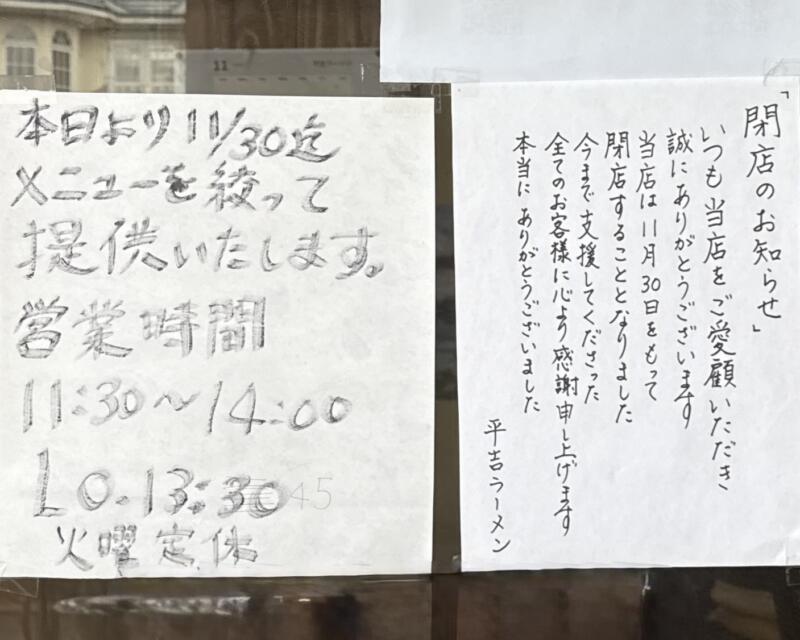 11
本日より11/30迄
メニューを絞って
提供いたします。
営業時間
11:30〜14:00
L O.13:30 45
火曜定休
「閉店のお知らせ」
いつも当店をご愛顧いただき
誠にありがとうございます
当店は11月30日をもって
閉店することとなりました
今まで支援してくださった
全てのお客様に心より感謝申し上げます
本当にありがとうございました
平吉ラーメン